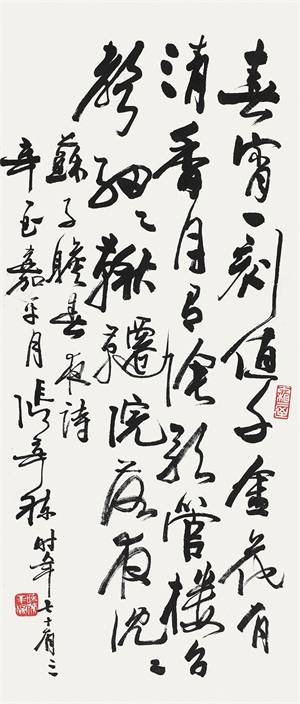 春宵一刻值千金花有
清香月有陰歌管樓台
聲細〻鞦韆院落夜沉〻
蘇子瞻春夜詩
辛酉嘉平月張辛稼时年七十有三